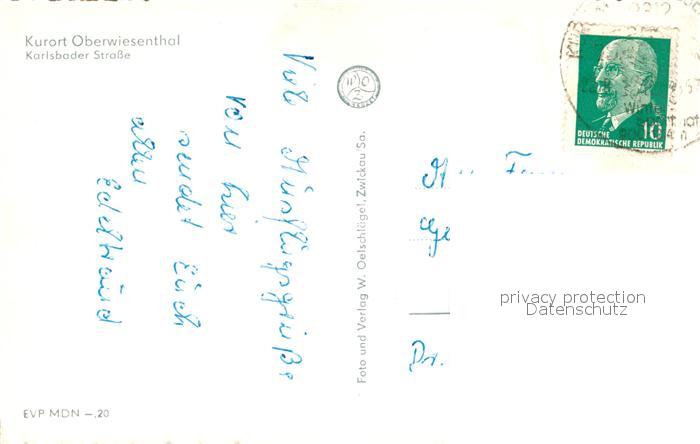 Kurort Oberwiesenthal
Karlsbader Straße
Viele Ausflugsgrüße
von hier
sendet Euch
allen
Edeltraud
EVP MDN —,20
Foto und Verlag W. Oelschlägel, Zwickau Sa.
10
DEUTSCHE
DEMOKRATISCHE REPUBLIK
Dr.
privacy protection
Datenschutz